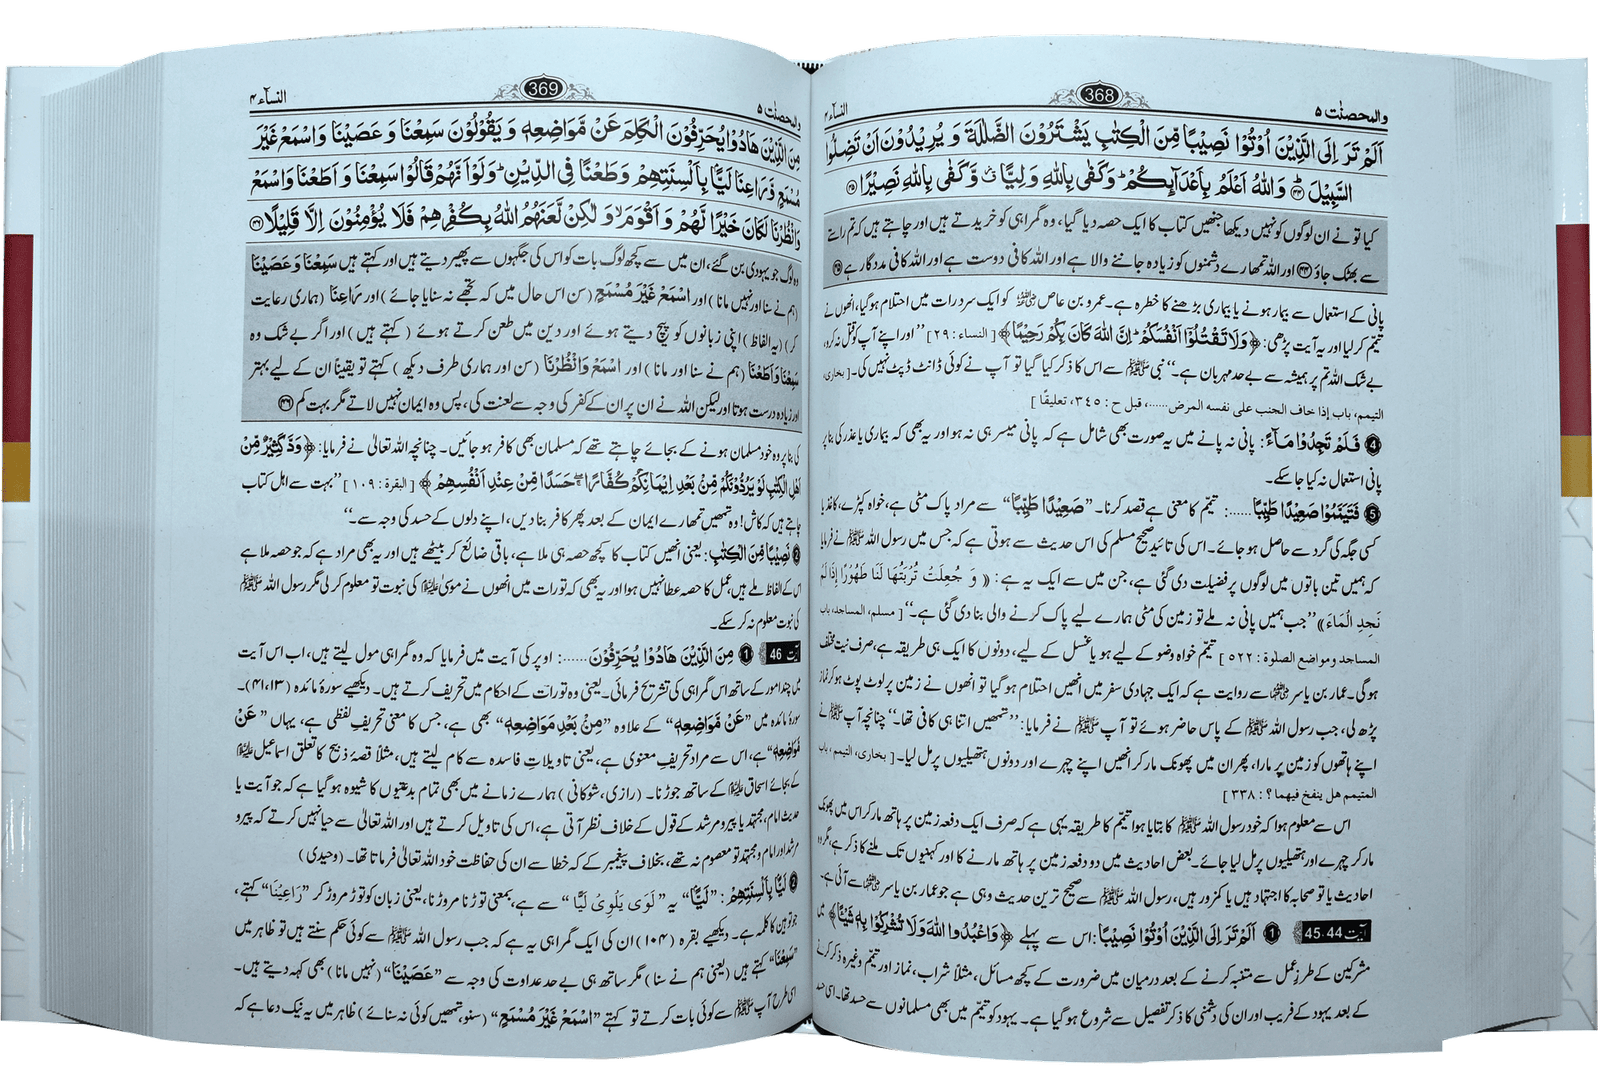 والمحصنٰت ۵
368
النسآء ۴
اَلَمْ تَرَ اِلَى الَّذِيْنَ اُوْتُوْا نَصِيْبًا مِّنَ الْكِتٰبِ يَشْتَرُوْنَ الضَّلٰلَةَ وَ يُرِيْدُوْنَ اَنْ تَضِلُّوا
السَّبِيْلَ ﴿۴۴﴾ وَاللّٰهُ اَعْلَمُ بِاَعْدَآىِٕكُمْ ؕ وَكَفٰى بِاللّٰهِ وَلِيًّا ٭ۙ وَّكَفٰى بِاللّٰهِ نَصِيْرًا ﴿۴۵﴾
کیا تو نے ان لوگوں کو نہیں دیکھا جنھیں کتاب کا ایک حصہ دیا گیا، وہ گمراہی کو خریدتے ہیں اور چاہتے ہیں کہ تم راستے
سے بھٹک جاؤ ﴿۴۴﴾ اور اللہ تمھارے دشمنوں کو زیادہ جاننے والا ہے اور اللہ کافی دوست ہے اور اللہ کافی مددگار ہے ﴿۴۵﴾
پانی کے استعمال سے بیمار ہونے یا بیماری بڑھنے کا خطرہ ہے۔ عمرو بن عاص رضی اللہ عنہ کو ایک سرد رات میں احتلام ہو گیا، انھوں نے
تیمم کر لیا اور یہ آیت پڑھی: ﴿وَلَا تَقْتُلُوْۤا اَنْفُسَكُمْ ؕ اِنَّ اللّٰهَ كَانَ بِكُمْ رَحِيْمًا﴾ [ النساء : ۲۹ ] ’’اور اپنے آپ کو قتل نہ کرو،
بے شک اللہ تم پر ہمیشہ سے بے حد مہربان ہے۔‘‘ نبی ﷺ سے اس کا ذکر کیا گیا تو آپ نے کوئی ڈانٹ ڈپٹ نہیں کی۔ [ بخاری،
التیمم، باب إذا خاف الجنب علی نفسه المرض......، قبل ح : ۳٤٥، تعلیقًا ]
4 فَلَمْ تَجِدُوْا مَآءً: پانی نہ پانے میں یہ صورت بھی شامل ہے کہ پانی میسر ہی نہ ہو اور یہ بھی کہ بیماری یا عذر کی بنا پر
پانی استعمال نہ کیا جا سکے۔
5 فَتَيَمَّمُوْا صَعِيْدًا طَيِّبًا......: تیمم کا معنی ہے قصد کرنا۔ ”صَعِيْدًا طَيِّبًا“ سے مراد پاک مٹی ہے، خواہ کپڑے، کاغذ یا
کسی جگہ کی گرد سے حاصل ہو جائے۔ اس کی تائید صحیح مسلم کی اس حدیث سے ہوتی ہے کہ جس میں رسول اللہ ﷺ نے فرمایا
کہ ہمیں تین باتوں میں لوگوں پر فضیلت دی گئی ہے، جن میں سے ایک یہ ہے: « وَ جُعِلَتْ تُرْبَتُهَا لَنَا طَهُوْرًا إِذَا لَمْ
نَجِدِ الْمَاءَ» ’’جب ہمیں پانی نہ ملے تو زمین کی مٹی ہمارے لیے پاک کرنے والی بنا دی گئی ہے۔‘‘ [ مسلم، المساجد، باب
المساجد ومواضع الصلوة : ٥٢٢ ] تیمم خواہ وضو کے لیے ہو یا غسل کے لیے، دونوں کا ایک ہی طریقہ ہے، صرف نیت مختلف
ہو گی۔ عمار بن یاسر رضی اللہ عنہما سے روایت ہے کہ ایک جہادی سفر میں انھیں احتلام ہو گیا تو انھوں نے زمین پر لوٹ پوٹ ہو کر نماز
پڑھ لی، جب رسول اللہ ﷺ کے پاس حاضر ہوئے تو آپ ﷺ نے فرمایا: ’’تمھیں اتنا ہی کافی تھا۔‘‘ چنانچہ آپ ﷺ نے
اپنے ہاتھوں کو زمین پر مارا، پھر ان میں پھونک مار کر انھیں اپنے چہرے اور دونوں ہتھیلیوں پر مل لیا۔ [ بخاری، التیمم، باب
المتیمم هل ینفخ فیهما؟ : ۳۳۸ ]
اس سے معلوم ہوا کہ خود رسول اللہ ﷺ کا بتایا ہوا تیمم کا طریقہ یہی ہے کہ صرف ایک دفعہ زمین پر ہاتھ مار کر اس میں پھونک
مار کر چہرے اور ہتھیلیوں پر مل لیا جائے۔ بعض احادیث میں دو دفعہ زمین پر ہاتھ مارنے کا اور کہنیوں تک ملنے کا ذکر ہے، مگر وہ
احادیث یا تو صحابہ کا اجتہاد ہیں یا کمزور ہیں، رسول اللہ ﷺ سے صحیح ترین حدیث وہی ہے جو عمار بن یاسر رضی اللہ عنہما سے آئی ہے۔
آیت 45،44 1 اَلَمْ تَرَ اِلَى الَّذِيْنَ اُوْتُوْا نَصِيْبًا: اس سے پہلے ﴿وَاعْبُدُوا اللّٰهَ وَلَا تُشْرِكُوْا بِهٖ شَيْـًٔا﴾ میں
مشرکین کے طرزِ عمل سے متنبہ کرنے کے بعد درمیان میں ضرورت کے کچھ مسائل، مثلاً شراب، نماز اور تیمم وغیرہ ذکر کرنے
کے بعد یہود کے فریب اور ان کی دشمنی کا ذکر تفصیل سے شروع ہو گیا ہے۔ یہود کو تیمم میں بھی مسلمانوں سے حسد تھا۔ اسی حسد
والمحصنٰت ۵
369
النسآء ۴
مِنَ الَّذِيْنَ هَادُوْا يُحَرِّفُوْنَ الْكَلِمَ عَنْ مَّوَاضِعِهٖ وَ يَقُوْلُوْنَ سَمِعْنَا وَ عَصَيْنَا وَ اسْمَعْ غَيْرَ
مُسْمَعٍ وَّ رَاعِنَا لَيًّۢا بِاَلْسِنَتِهِمْ وَ طَعْنًا فِي الدِّيْنِ ؕ وَ لَوْ اَنَّهُمْ قَالُوْا سَمِعْنَا وَ اَطَعْنَا وَ اسْمَعْ
وَ انْظُرْنَا لَكَانَ خَيْرًا لَّهُمْ وَ اَقْوَمَ ۙ وَ لٰكِنْ لَّعَنَهُمُ اللّٰهُ بِكُفْرِهِمْ فَلَا يُؤْمِنُوْنَ اِلَّا قَلِيْلًا ﴿۴۶﴾
وہ لوگ جو یہودی بن گئے، ان میں سے کچھ لوگ بات کو اس کی جگہوں سے پھیر دیتے ہیں اور کہتے ہیں سَمِعْنَا وَ عَصَيْنَا
(ہم نے سنا اور نہیں مانا) اور اسْمَعْ غَيْرَ مُسْمَعٍ (سن اس حال میں کہ تجھے نہ سنایا جائے) اور رَاعِنَا (ہماری رعایت
کر) (یہ الفاظ) اپنی زبانوں کو پیچ دیتے ہوئے اور دین میں طعن کرتے ہوئے (کہتے ہیں) اور اگر بے شک وہ
سَمِعْنَا وَ اَطَعْنَا (ہم نے سنا اور مانا) اور اسْمَعْ وَانْظُرْنَا (سن اور ہماری طرف دیکھ) کہتے تو یقیناً ان کے لیے بہتر
اور زیادہ درست ہوتا اور لیکن اللہ نے ان پر ان کے کفر کی وجہ سے لعنت کی، پس وہ ایمان نہیں لاتے مگر بہت کم ﴿۴۶﴾
کی بنا پر وہ خود مسلمان ہونے کے بجائے چاہتے تھے کہ مسلمان بھی کافر ہو جائیں۔ چنانچہ اللہ تعالیٰ نے فرمایا: ﴿وَدَّ كَثِيْرٌ مِّنْ
اَهْلِ الْكِتٰبِ لَوْ يَرُدُّوْنَكُمْ مِّنْۢ بَعْدِ اِيْمَانِكُمْ كُفَّارًا ۖۚ حَسَدًا مِّنْ عِنْدِ اَنْفُسِهِمْ﴾ [ البقرة : ۱۰۹ ] ’’بہت سے اہل کتاب
چاہتے ہیں کہ کاش! وہ تمھیں تمھارے ایمان کے بعد پھر کافر بنا دیں، اپنے دلوں کے حسد کی وجہ سے۔‘‘
2 نَصِيْبًا مِّنَ الْكِتٰبِ: یعنی انھیں کتاب کا کچھ حصہ ہی ملا ہے، باقی ضائع کر بیٹھے ہیں اور یہ بھی مراد ہے کہ جو حصہ ملا ہے
اس کے الفاظ ملے ہیں، عمل کا حصہ عطا نہیں ہوا اور یہ بھی کہ تورات میں انھوں نے موسیٰ علیہ السلام کی نبوت تو معلوم کر لی مگر رسول اللہ ﷺ
کی نبوت معلوم نہ کر سکے۔
آیت 46 1 مِنَ الَّذِيْنَ هَادُوْا يُحَرِّفُوْنَ......: اوپر کی آیت میں فرمایا کہ وہ گمراہی مول لیتے ہیں، اب اس آیت
میں چند امور کے ساتھ اس گمراہی کی تشریح فرمائی۔ یعنی وہ تورات کے احکام میں تحریف کرتے ہیں۔ دیکھیے سورۂ مائدہ (۴۱،۱۳)۔
سورۂ مائدہ میں ”عَنْ مَّوَاضِعِهٖ“ کے علاوہ ”مِنْۢ بَعْدِ مَوَاضِعِهٖ“ بھی ہے، جس کا معنی تحریف لفظی ہے، یہاں ”عَنْ
مَّوَاضِعِهٖ“ ہے، اس سے مراد تحریف معنوی ہے، یعنی تاویلاتِ فاسدہ سے کام لیتے ہیں، مثلاً قصۂ ذبیح کا تعلق اسماعیل علیہ السلام
کے بجائے اسحاق علیہ السلام کے ساتھ جوڑنا۔ (رازی، شوکانی) ہمارے زمانے میں بھی تمام بدعتیوں کا شیوہ ہو گیا ہے کہ جو آیت یا
حدیث امام، مجتہد یا پیر و مرشد کے قول کے خلاف نظر آتی ہے، اس کی تاویل کرتے ہیں اور اللہ تعالیٰ سے حیا نہیں کرتے کہ پیر و
مرشد اور امام و مجتہد تو معصوم نہ تھے، بخلاف پیغمبر کے کہ خطا سے ان کی حفاظت خود اللہ تعالیٰ فرماتا تھا۔ (وحیدی)
2 لَيًّۢا بِاَلْسِنَتِهِمْ: ”لَيًّا“ یہ ”لَوَى يَلْوِىْ لَيًّا“ سے ہے، بمعنی توڑنا مروڑنا، یعنی زبان کو توڑ مروڑ کر ”رَاعِيْنَا“ کہتے،
جو توہین کا کلمہ ہے۔ دیکھیے بقرہ (۱۰۴) ان کی ایک گمراہی یہ ہے کہ جب رسول اللہ ﷺ سے کوئی حکم سنتے ہیں تو ظاہر میں
”سَمِعْنَا“ کہتے ہیں (یعنی ہم نے سنا) مگر ساتھ ہی بے حد عداوت کی وجہ سے ”عَصَيْنَا“ (نہیں مانا) بھی کہہ دیتے ہیں۔
اسی طرح آپ ﷺ سے کوئی بات کرتے تو کہتے ”اسْمَعْ غَيْرَ مُسْمَعٍ“ (سنو، تمھیں کوئی نہ سنائے) ظاہر میں یہ نیک دعا ہے کہ